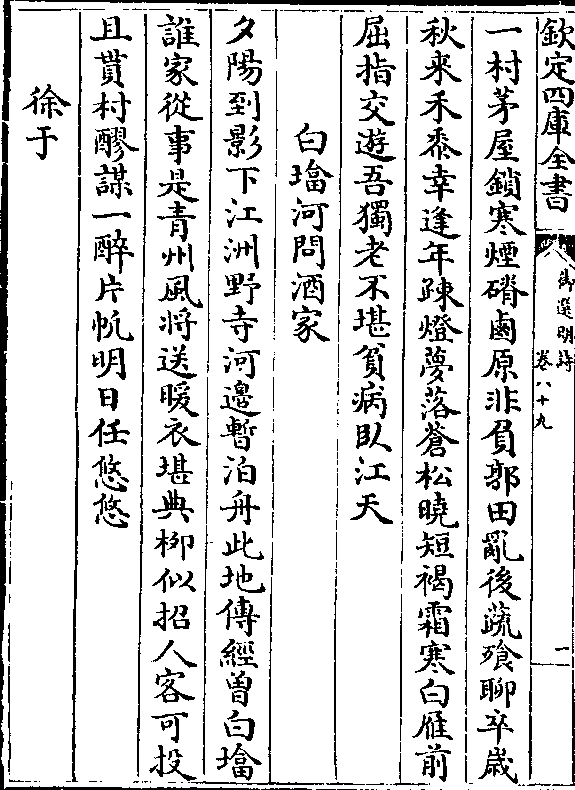 欽定四庫全書
御選明詩
卷八十九
一
一村茅屋鎖寒煙磽鹵原非負郭田亂後蔬飱聊卒歲
秋来禾黍幸逢年踈燈夢落蒼松曉短褐霜寒白雁前
屈指交遊吾獨老不堪貧病臥江天
白墖河問酒家
夕陽到影下江洲野寺河邉暫泊舟此地傳經曽白墖
誰家從事是青州風将送暖衣堪典栁似招人客可投
且貰村醪謀一醉片帆明日任悠悠
徐于